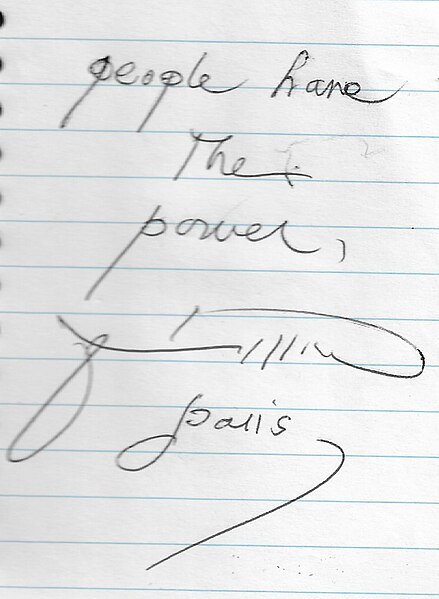 people have
The
power,
paris